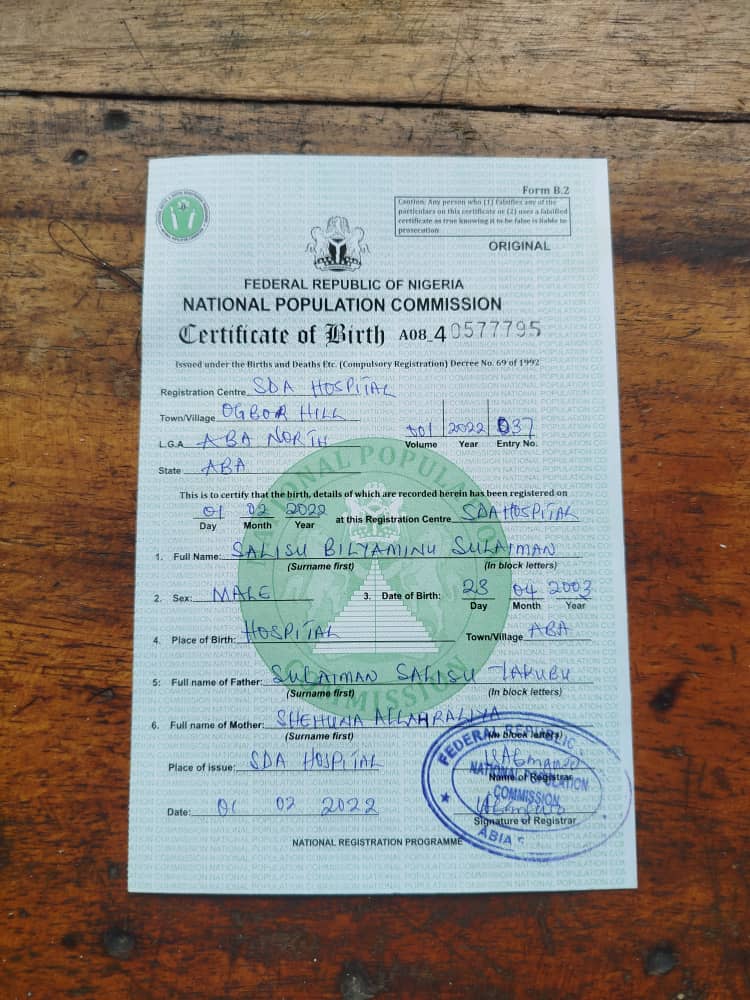 Form B.2
Caution: Any person who (1) falsifies any of the
particulars on this certificate or (2) uses a falsified
certificate as true knowing it to be false is liable to
prosecution
ORIGINAL
FEDERAL REPUBLIC OF NIGERIA
NATIONAL POPULATION COMMISSION
Certificate of Birth A08_4 0577795
Issued under the Births and Deaths Etc. (Compulsory Registration) Decree No. 69 of 1992
Registration Centre SDA HOSPITAL
Town/Village OGBOR HILL
L.G.A ABA NORTH
001 2022 037
Volume Year Entry No.
State ABA
This is to certify that the birth, details of which are recorded herein has been registered on
01 02 2022 at this Registration Centre SDA HOSPITAL
Day Month Year
1. Full Name: SALISU BILYAMINU SULAIMAN
(Surname first) (In block letters)
2. Sex: MALE 3. Date of Birth: 23 04 2003
Day Month Year
4. Place of Birth: HOSPITAL Town/Village ABA
5: Full name of Father: SULAIMAN SALISU YAKUBU
(Surname first) (In block letters)
6. Full name of Mother: SHEHUNA ALLAHRALIYA
(Surname first) (In block letters)
Place of issue: SDA HOSPITAL
Name of Registrar
Date: 01 02 2022
Signature of Registrar
FEDERAL REPUBLIC
NATIONAL POPULATION
COMMISSION
ABIA
NATIONAL REGISTRATION PROGRAMME
NATIONAL POPULATION
COMMISSION